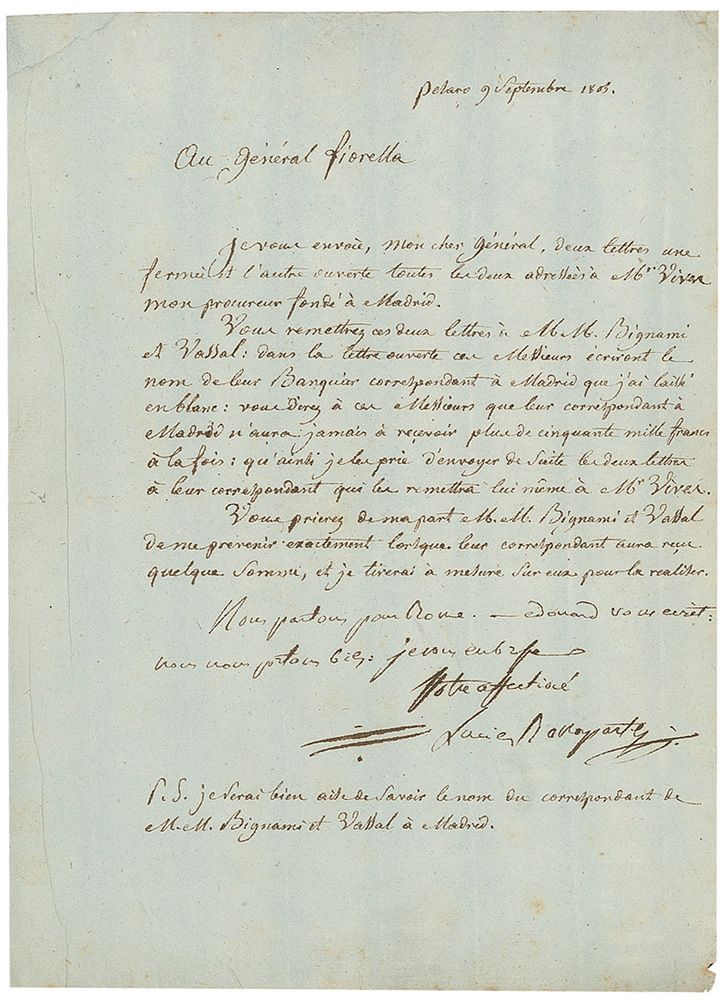 Pesaro 9 Septembre 1805.
Au général fiorella
Je vous envoie, mon cher Général, deux lettres une
fermée et l'autre ouverte toutes les deux adressées à Mr. Vives
mon procureur fondé à Madrid.
Vous remettrez ces deux lettres à M.M. Bignami
et Vassal: dans la lettre ouverte ces Messieurs écriront le
nom de leur Banquier correspondant à Madrid que j'ai laissé
en blanc: vous direz à ces Messieurs que leur correspondant à
Madrid n'aura jamais à recevoir plus de cinquante mille francs
à la fois: qu'ainsi je les prie d'envoyer de suite les deux lettres
à leur correspondant qui les remettra lui même à Mr. Vives.
Vous prierez de ma part M.M. Bignami et Vassal
de me prévenir exactement lorsque leur correspondant aura reçu
quelque somme, et je tirerai à mesure sur eux pour la realiser.
Nous partons pour Rome. — edouard vous écrit:
nous nous portons bien: je vous embrasse
Votre affectioné
Lucien Bonaparte
P.S. je serai bien aise de savoir le nom du correspondant de
M.M. Bignami et Vassal à Madrid.